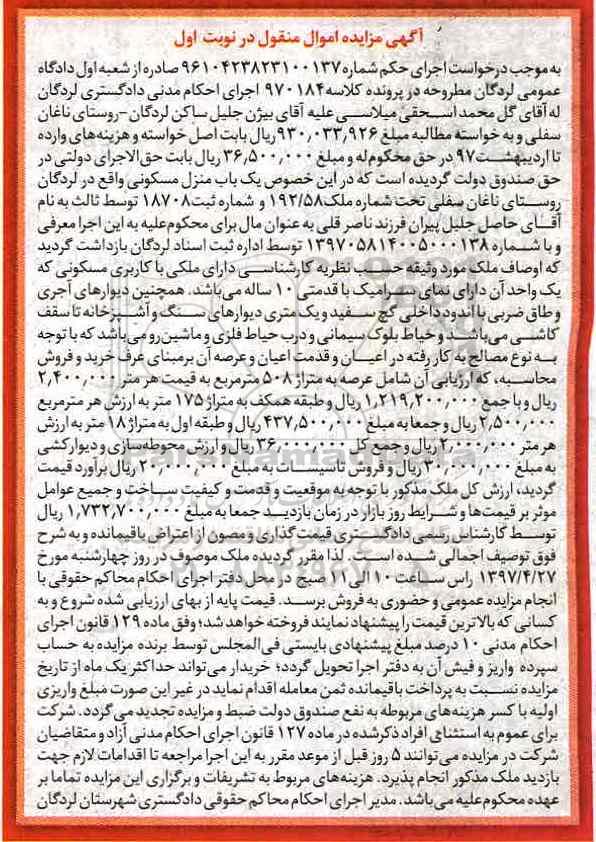 آگهی مزایده اموال منقول در نوبت اول
به موجب درخواست اجرای حکم شماره ۹۶۱۰۴۲۳۸۲۳۱۰۰۱۳۷ صادره از شعبه اول دادگاه
عمومی لردگان مطروحه در پرونده کلاسه ۹۷۰۱۸۴ اجرای احکام مدنی دادگستری لردگان
له آقای گل محمد اسحقی میلاسی علیه آقای بیژن جلیل ساکن لردگان -روستای ناغان
سفلی و به خواسته مطالبه مبلغ ۹۳۰,۰۳۳,۹۲۶ ریال بابت اصل خواسته و هزینه‌های وارده
تا اردیبهشت ۹۷ در حق محکوم‌له و مبلغ ۳۶,۵۰۰,۰۰۰ ریال بابت حق‌الاجرای دولتی در
حق صندوق دولت گردیده است که در این خصوص یک باب منزل مسکونی واقع در لردگان
روستای ناغان سفلی تحت شماره ملک ۱۹۲/۵۸ و شماره ثبت ۱۸۷۰۸ توسط ثالث به نام
آقای حاصل جلیل پیران فرزند ناصر قلی به عنوان مال برای محکوم‌علیه به این اجرا معرفی
و با شماره ۱۳۹۷۰۵۸۱۴۰۰۵۰۰۰۱۳۸ توسط اداره ثبت اسناد لردگان بازداشت گردید
که اوصاف ملک مورد وثیقه حسب نظریه کارشناسی دارای ملکی با کاربری مسکونی که
یک واحد آن دارای نمای سرامیک با قدمتی ۱۰ ساله می‌باشد. همچنین دیوارهای آجری
و طاق ضربی با اندود داخلی گچ سفید و یک متری دیوارهای سنگ و آشپزخانه تا سقف
کاشی می‌باشد و حیاط بلوک سیمانی و درب حیاط فلزی و ماشین‌رو می‌باشد که با توجه
به نوع مصالح به کار رفته در اعیان و قدمت اعیان و عرصه آن برمبنای عرف خرید و فروش
محاسبه، که ارزیابی آن شامل عرصه به متراژ ۵۰۸ مترمربع به قیمت هر متر ۲,۴۰۰,۰۰۰
ریال و با جمع ۱,۲۱۹,۲۰۰,۰۰۰ ریال و طبقه همکف به متراژ ۱۷۵ متر به ارزش هر مترمربع
۲,۵۰۰,۰۰۰ ریال و جمعا به مبلغ ۴۳۷,۵۰۰,۰۰۰ ریال و طبقه اول به متراژ ۱۸ متر به ارزش
هر متر ۲,۰۰۰,۰۰۰ ریال و جمع کل ۳۶,۰۰۰,۰۰۰ ریال و ارزش محوطه‌سازی و دیوارکشی
به مبلغ ۳۰,۰۰۰,۰۰۰ ریال و فروش تاسیسات به مبلغ ۲۰,۰۰۰,۰۰۰ ریال برآورد قیمت
گردید، ارزش کل ملک مذکور با توجه به موقعیت و قدمت و کیفیت ساخت و جمیع عوامل
موثر بر قیمت‌ها و شرایط روز بازار در زمان بازدید جمعا به مبلغ ۱,۷۳۲,۷۰۰,۰۰۰ ریال
توسط کارشناس رسمی دادگستری قیمت گذاری و مصون از اعتراض باقیمانده و به شرح
فوق توصیف اجمالی شده است. لذا مقرر گردیده ملک موصوف در روز چهارشنبه مورخ
۱۳۹۷/۴/۲۷ راس ساعت ۱۰ الی ۱۱ صبح در محل دفتر اجرای احکام محاکم حقوقی با
انجام مزایده عمومی و حضوری به فروش برسد. قیمت پایه از بهای ارزیابی شده شروع و به
کسانی که بالاترین قیمت را پیشنهاد نمایند فروخته خواهد شد؛ وفق ماده ۱۲۹ قانون اجرای
احکام مدنی ۱۰ درصد مبلغ پیشنهادی بایستی فی‌المجلس توسط برنده مزایده به حساب
سپرده واریز و فیش آن به دفتر اجرا تحویل گردد؛ خریدار می‌تواند حداکثر یک ماه از تاریخ
مزایده نسبت به پرداخت باقیمانده ثمن معامله اقدام نماید در غیر این صورت مبلغ واریزی
اولیه با کسر هزینه‌های مربوطه به نفع صندوق دولت ضبط و مزایده تجدید می‌گردد. شرکت
برای عموم به استثنای افراد ذکر شده در ماده ۱۲۷ قانون اجرای احکام مدنی آزاد و متقاضیان
شرکت در مزایده می‌توانند ۵ روز قبل از موعد مقرر به این اجرا مراجعه تا اقدامات لازم جهت
بازدید ملک مذکور انجام پذیرد. هزینه‌های مربوط به تشریفات و برگزاری این مزایده تماما بر
عهده محکوم‌علیه می‌باشد. مدیر اجرای احکام محاکم حقوقی دادگستری شهرستان لردگان